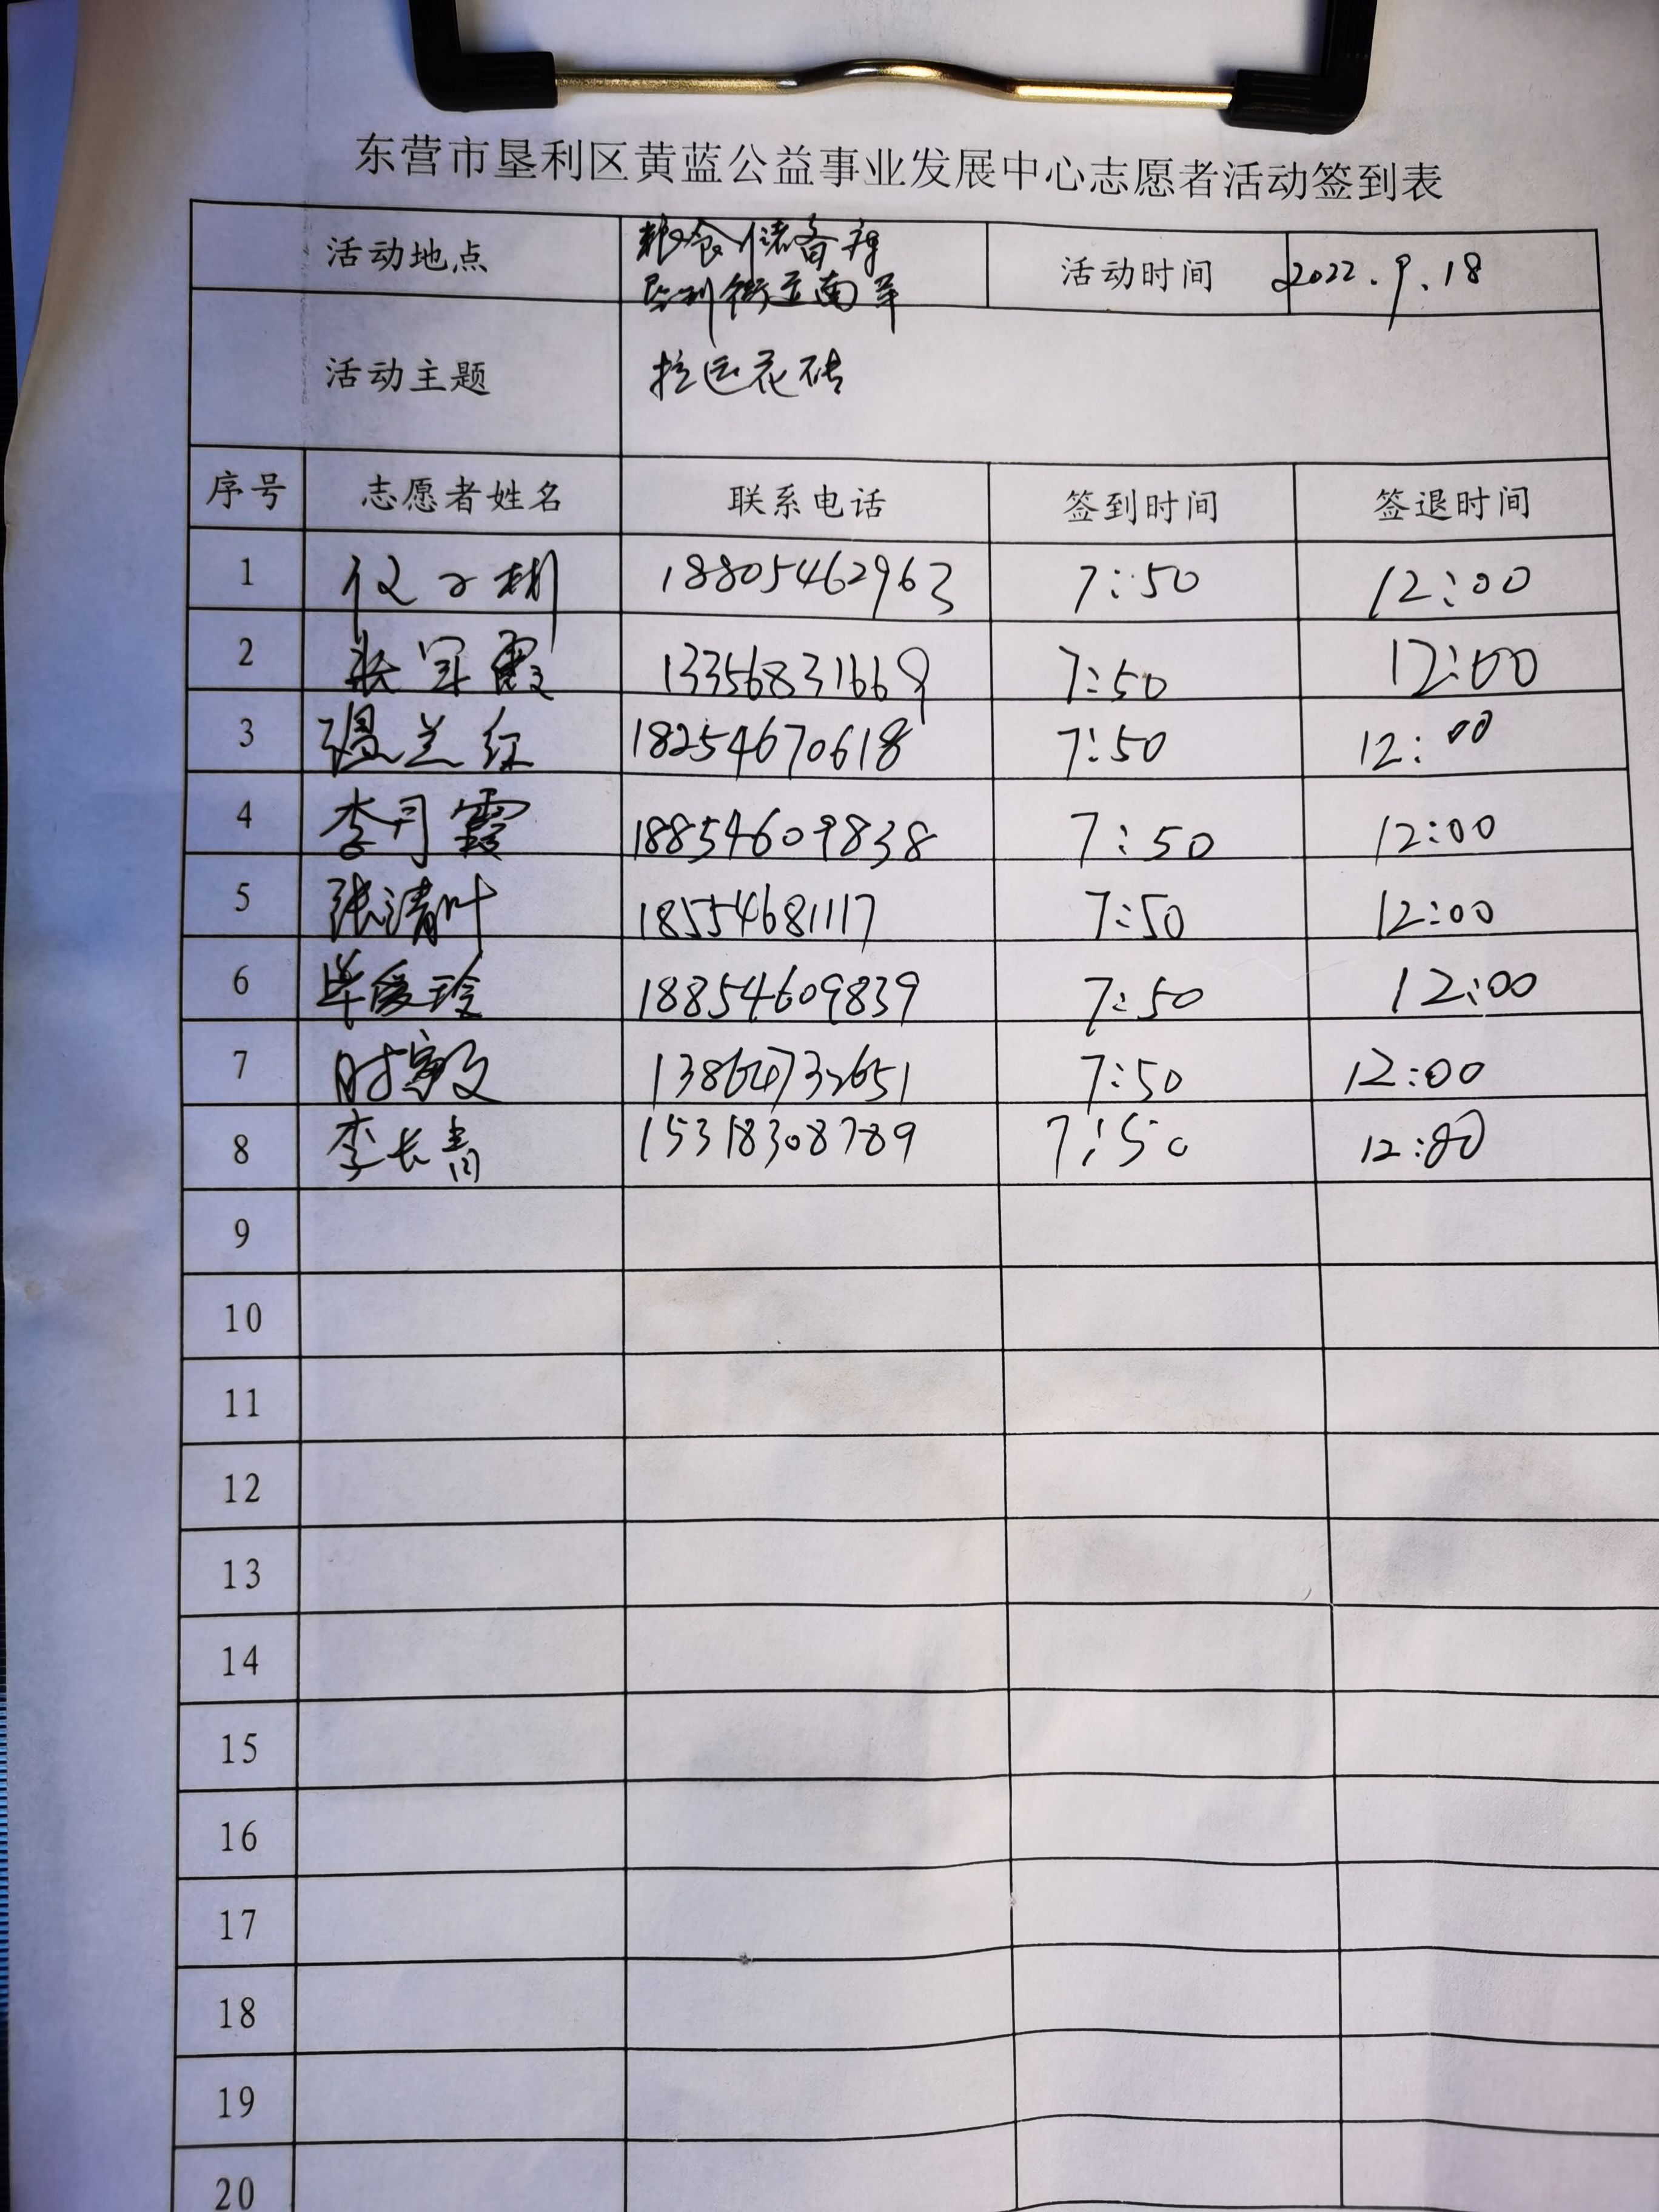 东营市垦利区黄蓝公益事业发展中心志愿者活动签到表
活动地点 粮食储备库 活动时间 2022.9.18
垦利街道南羊
活动主题 拉运花砖
序号 志愿者姓名 联系电话 签到时间 签退时间
1 18805462963 7:50 12:00
2 张军霞 13356831669 7:50 12:00
3 温兰红 18254670618 7:50 12:00
4 李月霞 18854609838 7:50 12:00
5 张清叶 18554681117 7:50 12:00
6 毕爱玲 18854609839 7:50 12:00
7 时宁文 13864732651 7:50 12:00
8 李长青 15318308789 7:50 12:00
9
10
11
12
13
14
15
16
17
18
19
20